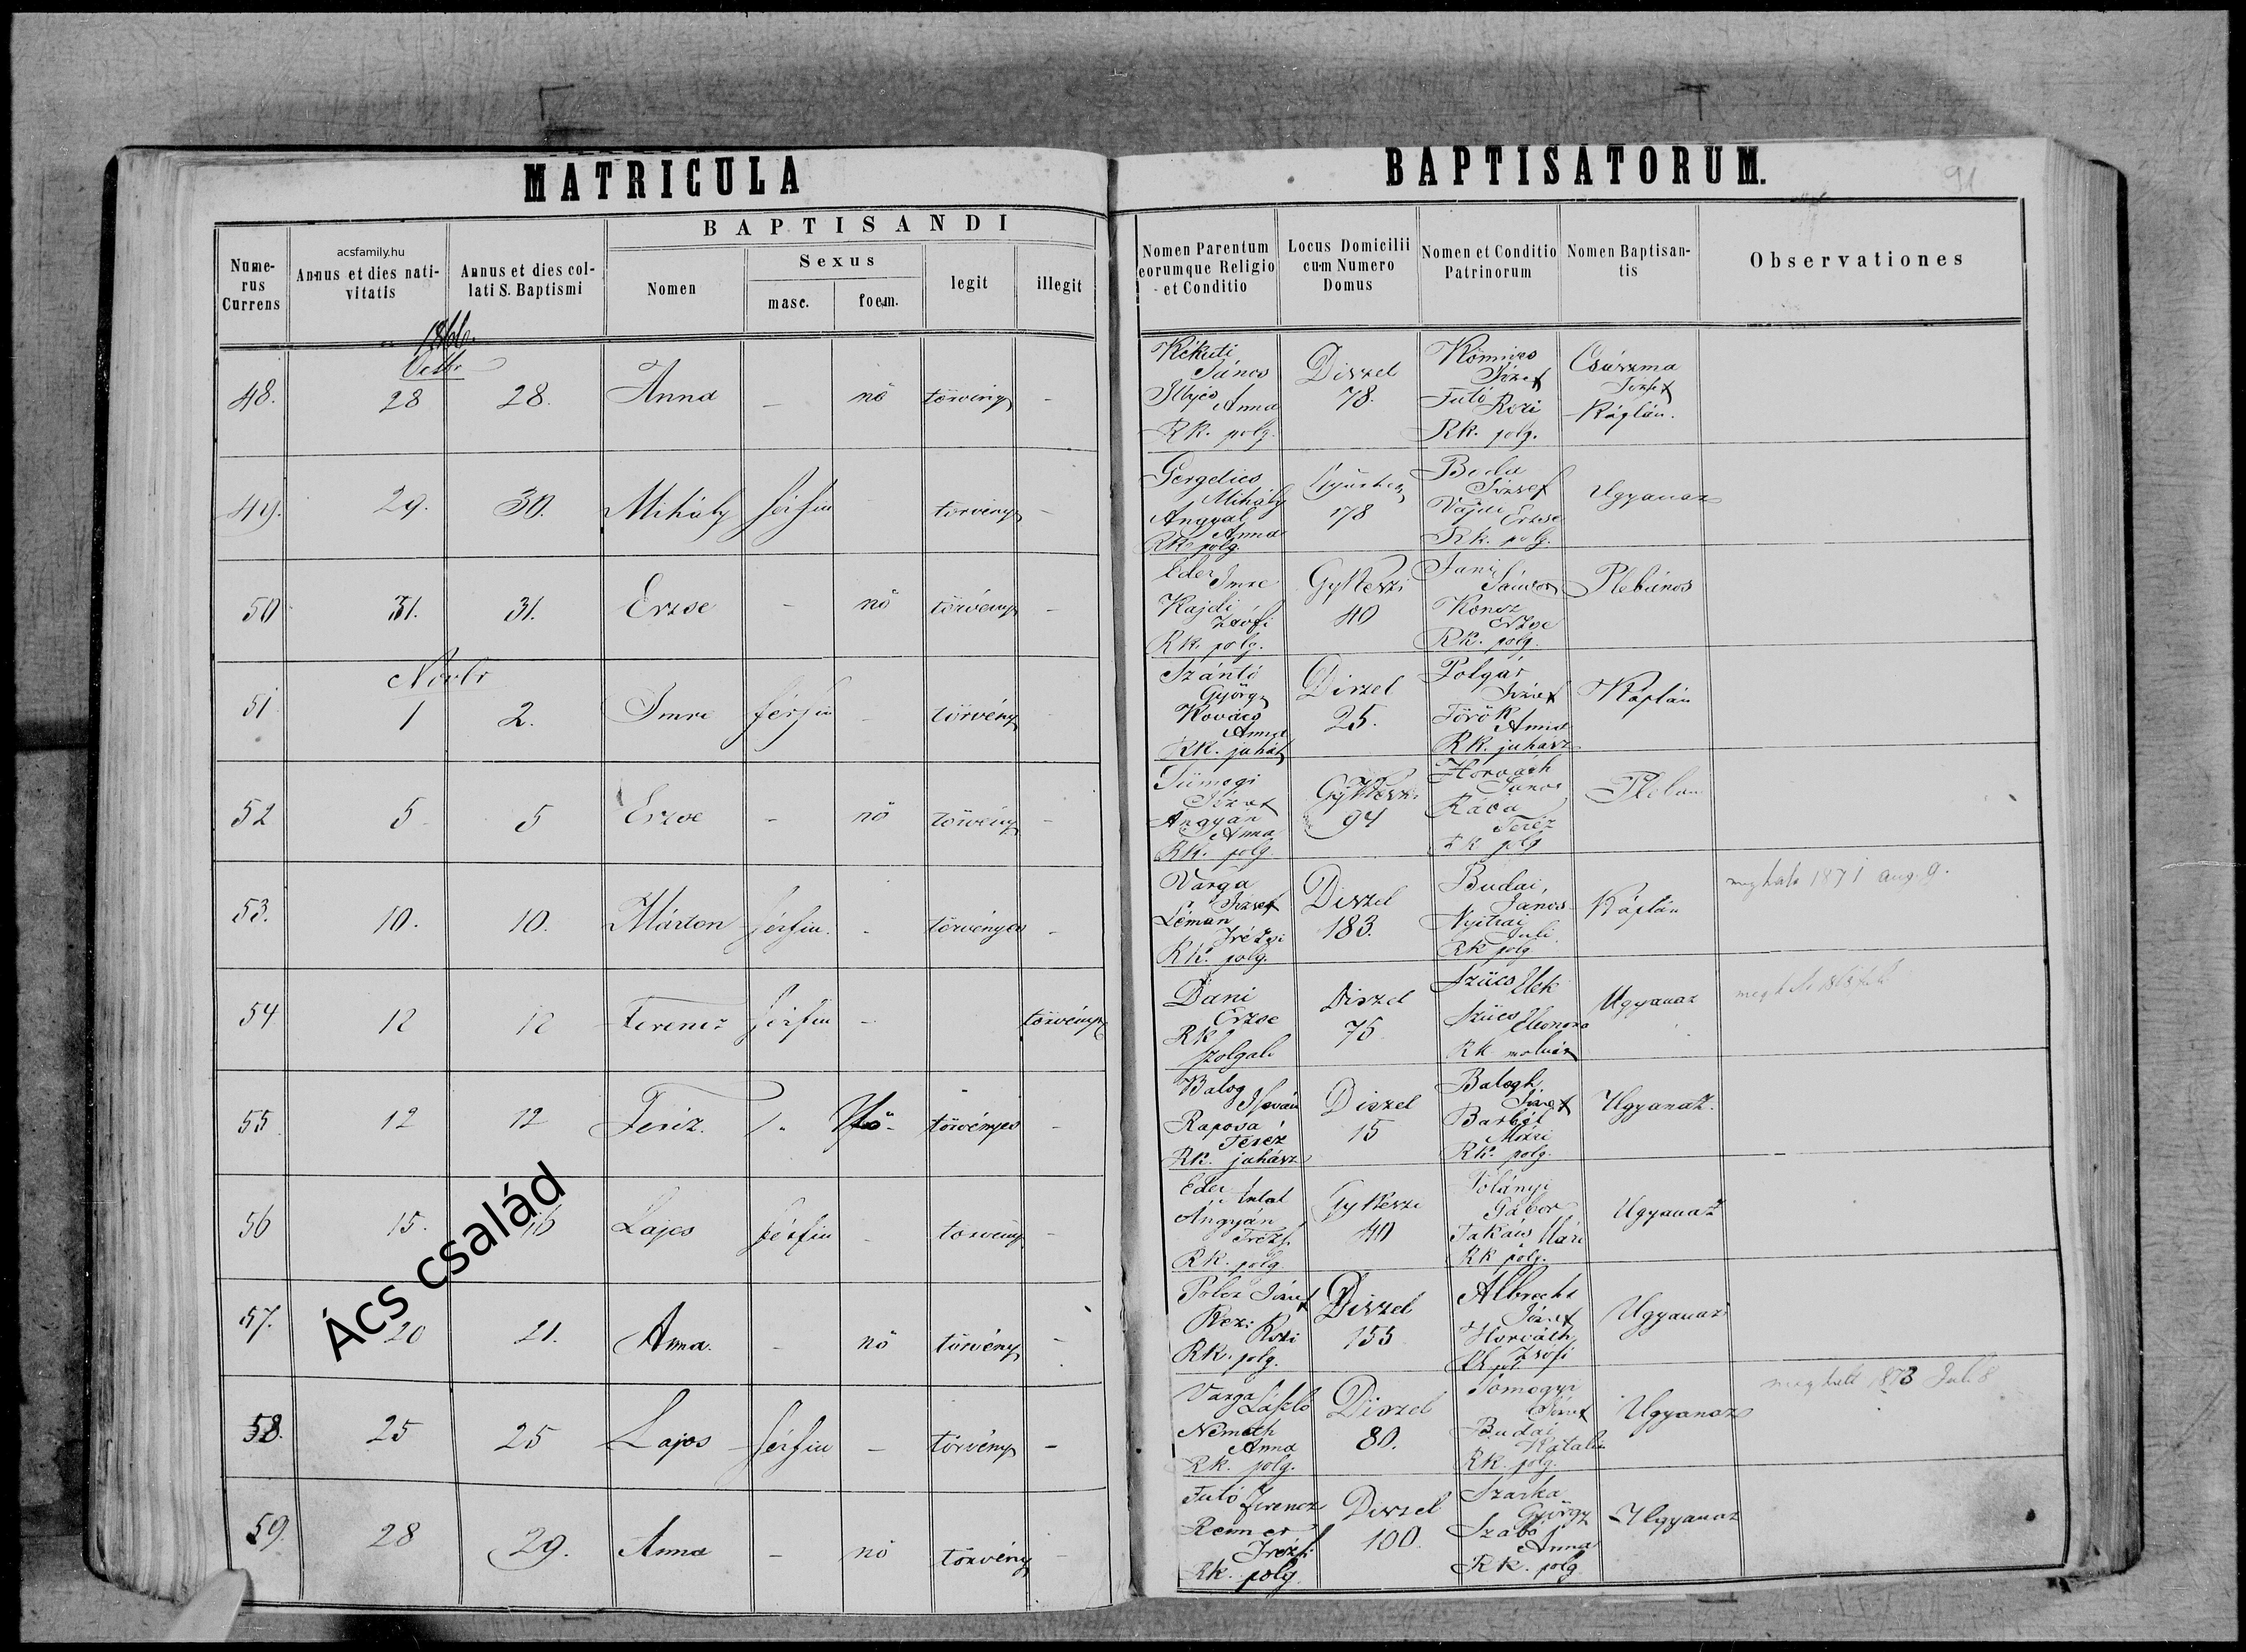 MATRICULA
BAPTISATORUM.
91
BAPTISANDI
acsfamily.hu
Nume-
rus
Currens
Annus et dies nati-
vitatis
Annus et dies col-
lati S. Baptismi
Nomen
Sexus
masc.
foem.
legit
illegit
Nomen Parentum
eorumque Religio
et Conditio
Locus Domicilii
cum Numero
Domus
Nomen et Conditio
Patrinorum
Nomen Baptisan-
tis
Observationes
1866.
Octbr
48. 28 28. Anna - nő törvény -
János
Anna
Rk. polg.
Diszel
78.
József
Futó Rozi
Rk. polg.
József
Káplán.
49. 29. 30. Mihály férfiu törvény -
Gergelics
Mihály
Angyal
Anna
Rk. polg.
178
Boda
József
Vajda Erzse
Rk. polg.
Ugyanaz
50 31. 31. Erzse - nő törvény -
Eder Imre
Kajdi
Zsófi
Rk. polg.
GyKeszi
40
Sándor
Koncz
Erzse
Rk. polg.
Plebános
Novbr
51 1 2. Imre férfiu - törvény
Szántó
György
Kovács
Anna
Rk. juhász
Diszel
25.
Polgár
József
Török
Anna
Rk. juhász
Káplán
52 5 5 Erzse - nő törvény -
Sümegi
József
Angyán
Anna
Rk. polg.
GyKeszi
94
Horváth
János
Teréz
Rk polg
Pleban
53. 10. 10. Márton férfiu. - törvényes -
Varga
József
Léman
Rk. polg.
Diszel
183.
Budai,
János
Nyitrai
Juli
Rk polg
Káplán
meghalt 1871 aug. 9.
54 12 12 Ferencz férfiu - törvényt
Dani
Erzse
Rk
szolgáló
Diszel
75
Szücs Elek
Szücs Eleonora
Rk molnár
Ugyanaz
55 12 12 Teréz. Nő - törvényes -
Balog István
Raposa
Teréz
Rk. juhász
Diszel
15
Balogh
József
Mári
Rk. polg.
Ugyanaz.
56 15. 16 Lajos férfiu - törvény -
Eder Antal
Angyán
Rk. polg
GyKeszi
40
Gábor
Takács Mári
Rk polg.
Ugyanaz
57. 20 21. Anna. - nő törvény -
József
Rozi
Rk. polg.
Diszel
155
Albrecht
József
Horváth
Zsófi
Ugyanaz
58. 25 25 Lajos férfiu - törvény -
Varga László
Németh
Anna
Rk. polg.
Diszel
80.
Somogyi
József
Budai
Katalin
Rk. polg.
Ugyanaz
meghalt 1873 Jul. 8
59. 28 29. Anna - nő törvény -
Futó Ferencz
Renner
Rk. polg.
Diszel
100.
Szarka
György
Szabó
Anna
Rk. polg
Ugyanaz
Ács család